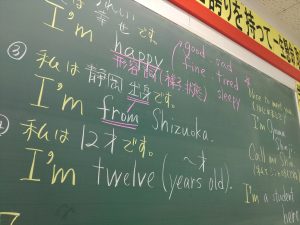 誇りを持って一
うれしい
私は幸せです。
I'm happy (good sad
fine tired
sleepy
形容詞(様子、状態)
③ 私は静岡出身です。
I'm from Shizuoka.
私は12才です。
~才
I'm twelve (years old).
I'm
Call me
I'm a student
here